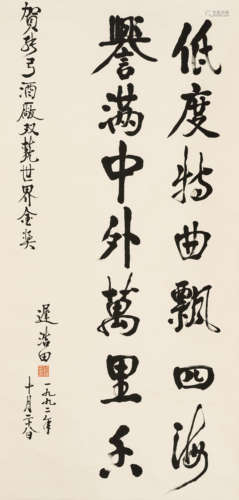 低度特曲飘四海
誉满中外萬里香
贺张弓酒廠双获世界金奖
迟浩田
一九九二年
十月六日